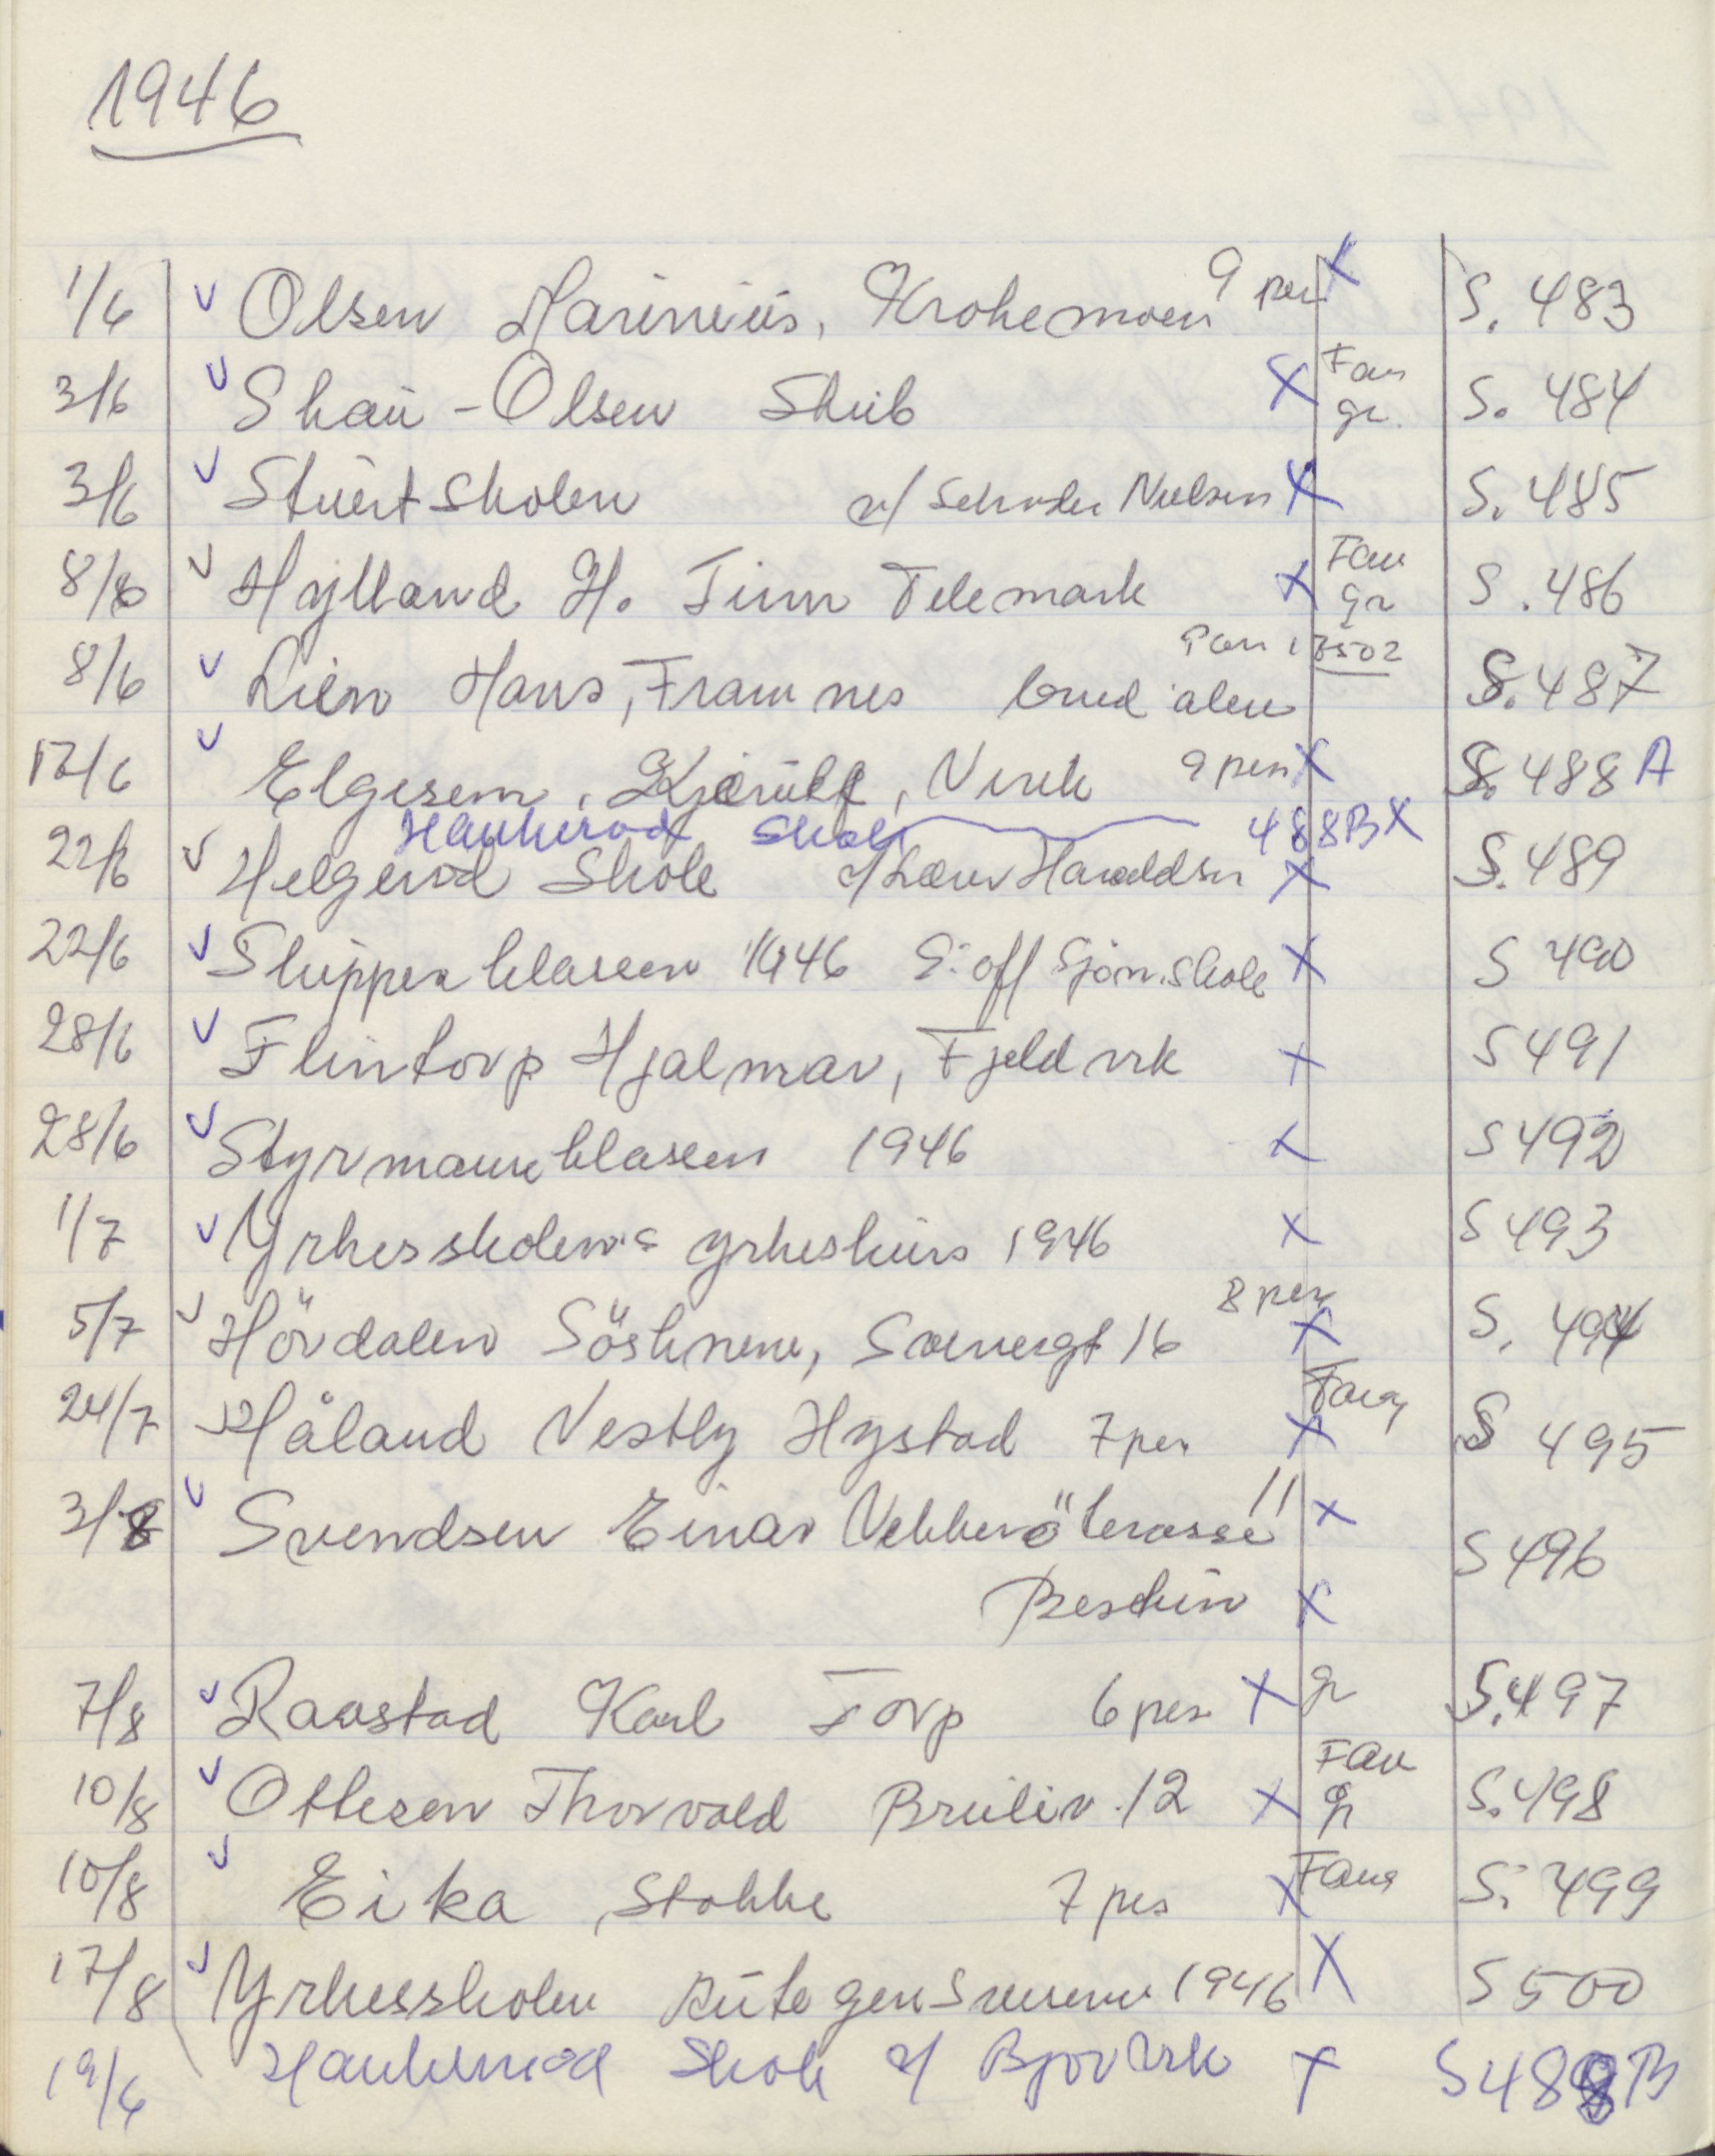 1946
1/6 Olsen Marinius, Krokemoen 9 per S. 483
3/6 Skau-Olsen Skib Fam gr. S. 484
3/6 Stuertskolen v/ Schrøder Nielsen S. 485
8/6 Hylland H. Tinn Telemark Fam gr S. 486
8/6 Lien Hans, Framnes brud alene S. 487
12/6 Elgesem, Kjerulf, Virik 9 pers S. 488 A
Haukerød Skole 488B
22/6 Helgerød Skole v/ Lærer Haraldsen S. 489
22/6 Skipperklassen 1946 S: off Sjøm. skole S 490
28/6 Flintorp Hjalmar, Fjeldvik S 491
28/6 Styrmannsklassen 1946 S 492
1/7 Yrkesskolens yrkeskurs 1946 S 493
5/7 Hövdalen Sösknene, 16 8 per S. 494
24/7 Håland Vestly Hystad 7 per Fam S 495
3/8 Svendsen Einar Vekkerö terasse 11 S 496
7/8 Raastad Karl Torp 6 pers gr S. 497
10/8 Ottesen Thorvald 12 Fam gr S. 498
10/8 Eika, Stokke 7 pers Fam S. 499
17/8 Yrkesskolen Rütegensveisene 1946 S 500
19/6 Haukerød Skole v/ Bjørvik S 488B